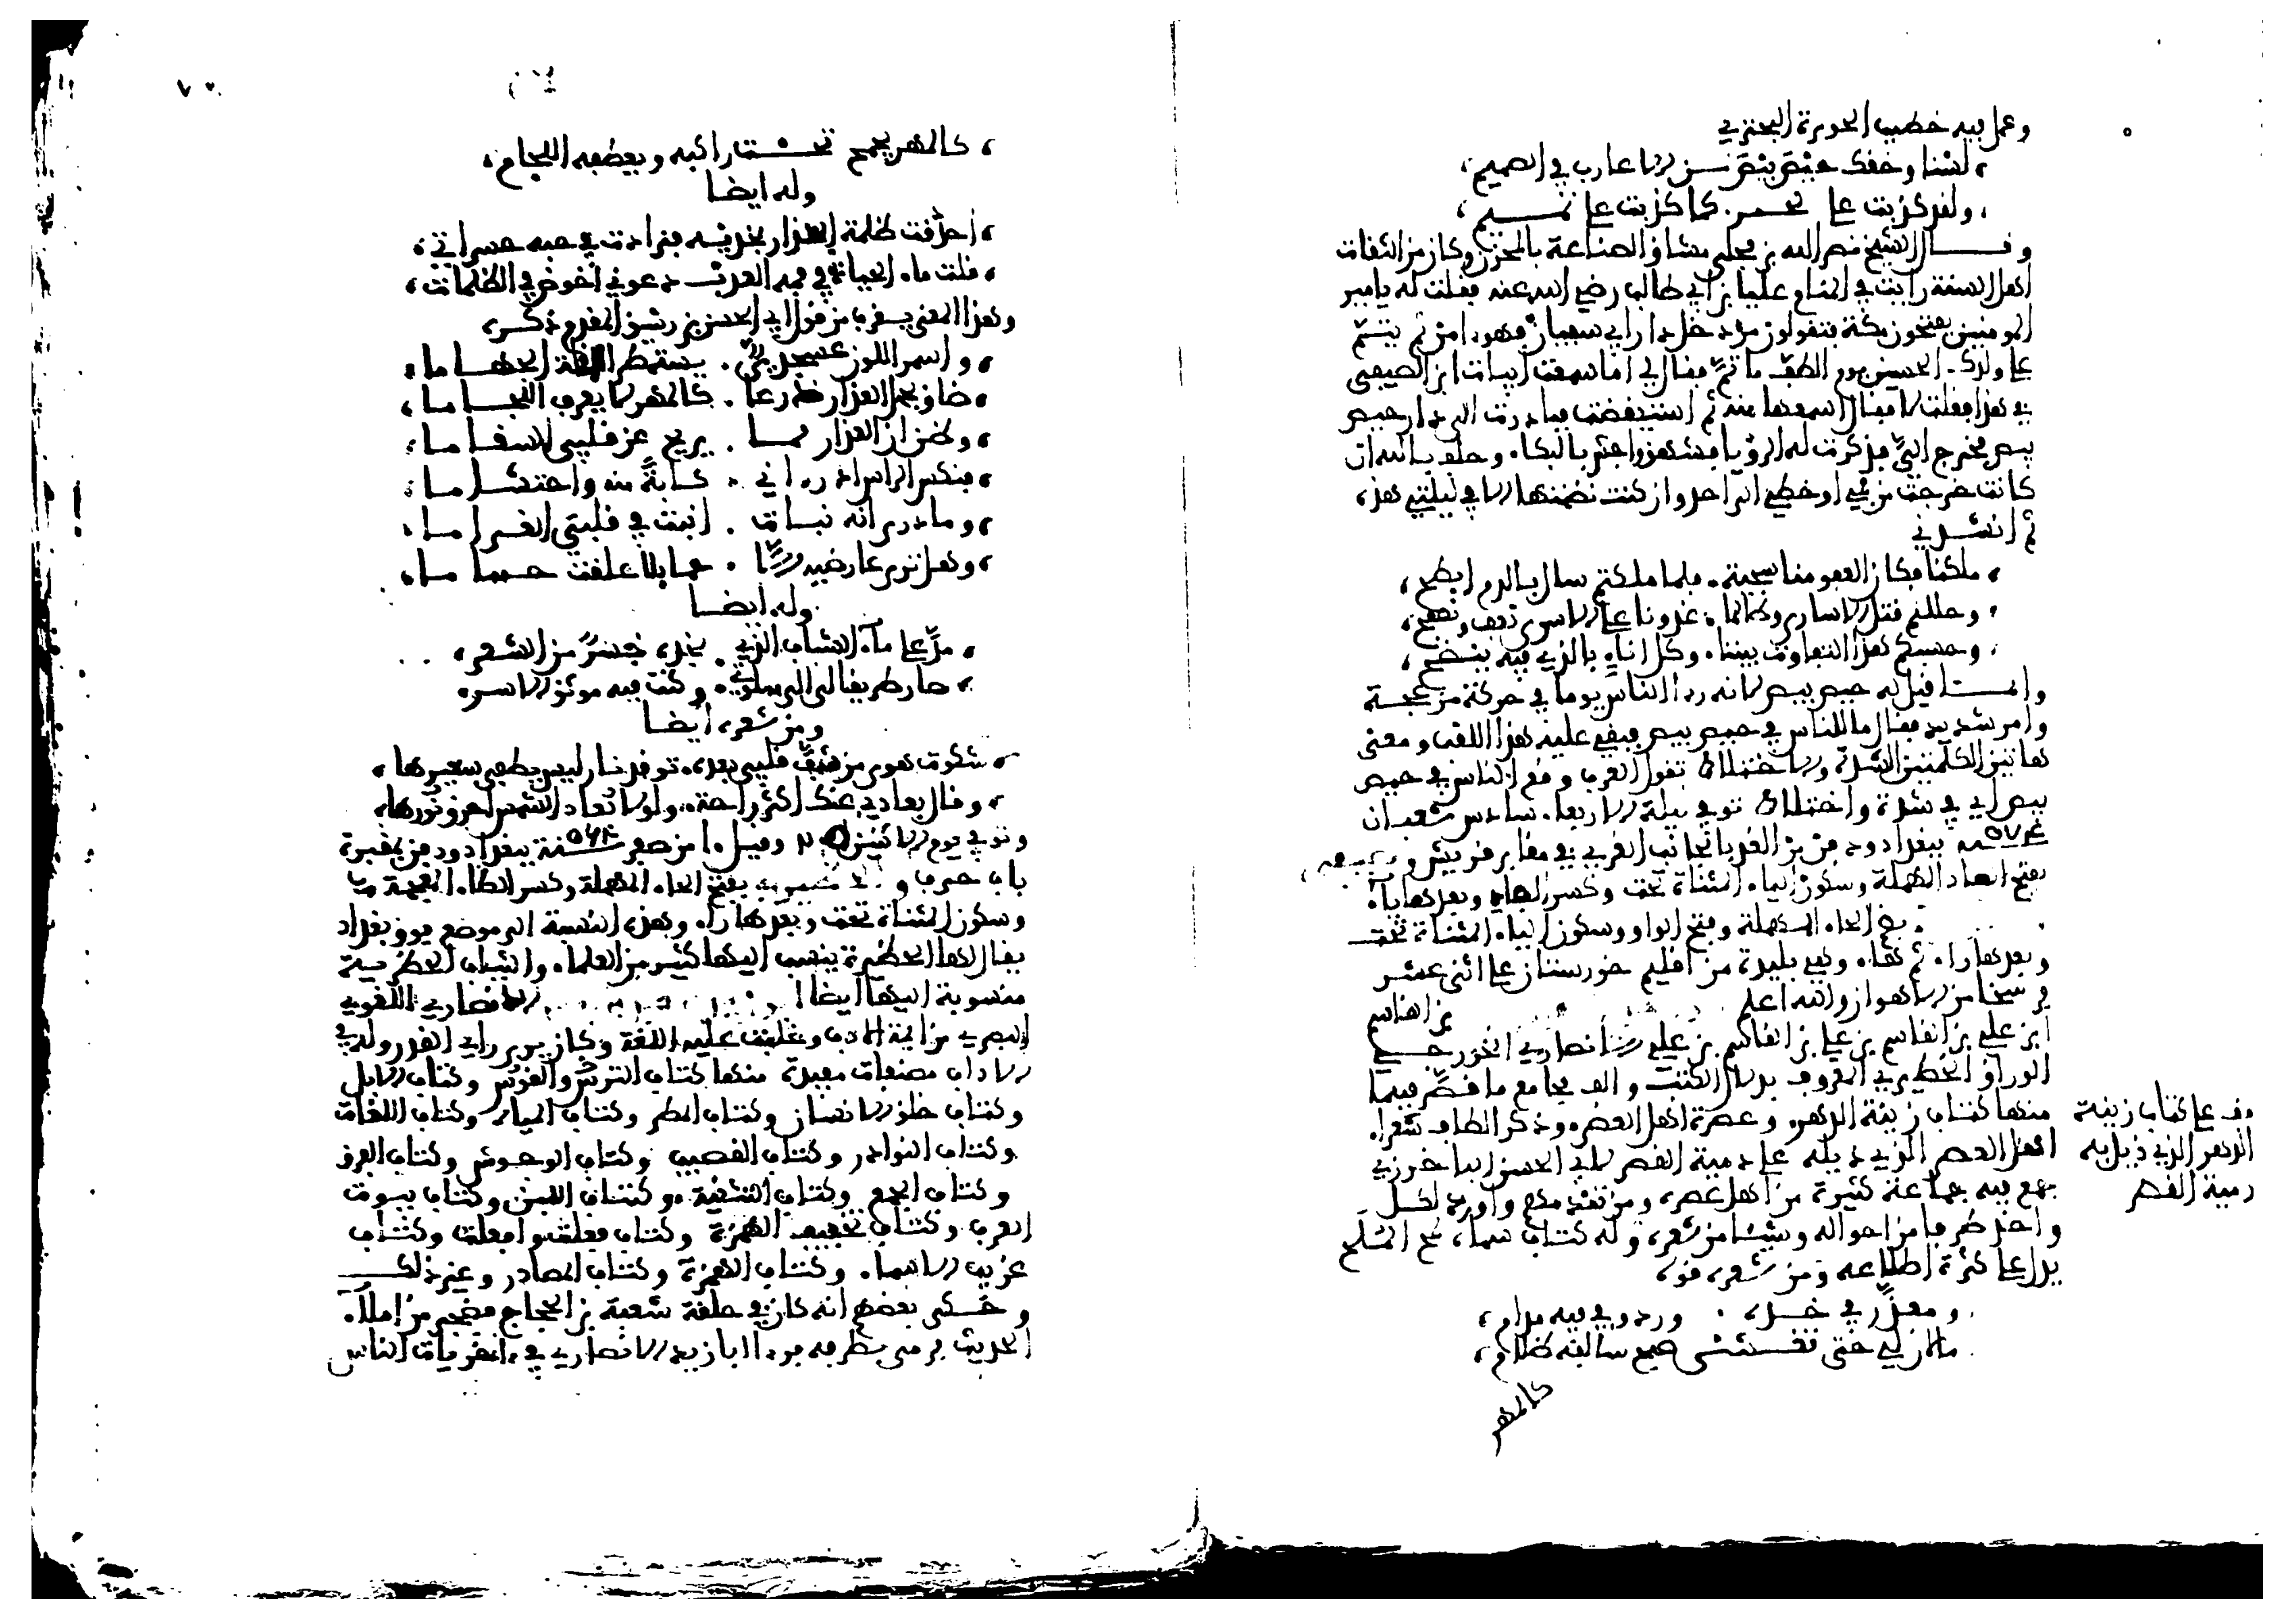 وعمل فيه خطيب الحويزة البحتري
لسنا وحقك حيص بيص من الاعارب في الصميم
ولقد كذبت على بحير كما كذبت على تميم
وقال الشيخ نصر الله بن مجلى مشاد الصناعة بالمخزن وكان من الثقات
اهل السنة رايت في المنام علي بن ابي طالب رضي الله عنه فقلت له يا مير
المومنين تفتحون مكة فتقولون من دخل دار ابي سفيان فهو امن ثم يتم
على ولدك الحسين يوم الطف ما تم فقال لي اما سمعت ابيات ابن الصيفي
في هذا فقلت لا فقال اسمعها منه ثم استيقظت فبادرت الى دار حيص
بيص فخرج الي فذكرت له الرؤيا فشهق واجهش بالبكاء وحلف بالله ان
كانت خرجت من فمي او خطي الى احد وان كنت نظمتها الا في ليلتي هذه
ثم انشدني
ملكنا فكان العفو منا سجية فلما ملكتم سال بالدم ابطح
وحللتم قتل الاسارى وطالما غدونا على الاسرى نعف ونصفح
وحسبكم هذا التفاوت بيننا وكل اناء بالذي فيه ينضح
وانما قيل له حيص بيص لانه راى الناس يوما في حركة مزعجة
وامر شديد فقال ما للناس في حيص بيص فبقي عليه هذا اللقب ومعنى
هاتين الكلمتين الشدة والاختلاط تقول العرب وقع الناس في حيص
بيص اي في شدة واختلاط توفي ليلة الاربعا سادس شعبان
٥٧٤ ببغداد ودفن من الغد بالجانب الغربي في مقابر قريش
بفتح الصاد المهملة وسكون الياء المثناة تحت وكسر الفاء وبعدها ياء
بضم الحاء المهملة وفتح الواو وسكون الياء المثناة تحت
وبعدها زاء ثم هاء وهي بليدة من اقليم خوزستان على اثنى عشر
فرسخا من الاهواز والله اعلم بن القاسم
ابن علي بن القاسم بن علي بن القاسم بن علي الانصاري الخزرجي
الوراق الحظيري المعروف بدلال الكتب والف مجامع ما قصر فيها
منها كتاب زينة الدهر وعصرة اهل العصر وذكر الطاف شعراء
اهل العصر الذي ذيله على دمية القصر لابي الحسن الباخرزي
جمع فيه جماعة كثيرة من اهل عصره ومن تقدمهم واورد لكل
واحد طرفا من احواله وشيئا من شعره وله كتاب سماه لمح الملح
يدل على كثرة اطلاعه ومن شعره قوله
ومعذر في خده ورد وفي فيه مدام
ما لان لي حتى تغشى صبح سالفه ظلام
كالمهر
قف على كتاب زينة
الدهر الذي ذيل به
دمية القصر
كالمهر يجمح تحت راكبه ويعطفه اللجام
وله ايضا
احدقت ظلمة العذار بخديه فزادت في حبه حسراتي
قلت ماء الحياة في فمه العذب دعوني اخوض في الظلمات
وهذا المعنى يقرب من قول ابي الحسن بن رشيق المقدم ذكره
واسمر اللون عسجدي يستمطر المقلة الجهاما
ضاق بحمل العذار ذرعا كالمهر لا يعرف اللجاما
وظن ان العذار مما يزيح عن قلبي السقاما
فنكس الراس اذ راني كابة منه واحتشاما
وما درى انه نبات انبت في قلبي الغراما
وهل ترى عارضيه الا حمايلا علقت حساما
وله ايضا
مد على ماء الشباب الذي بخده جسر من الشعر
صار طريقا لي الى سلوتي وكنت فيه موثق الاسر
ومن شعره ايضا
شكوت هوى من شف قلبي بعده توقد نار ليس يطفى سعيرها
وقال بعادي عنك اكثر راحة ولولا بعاد الشمس احرق نورها
وتوفي يوم الاثنين ٢٥ وقيل ١٥ من صفر سنة ٥٦٨ ببغداد ودفن بمقبرة
باب حرب بفتح الحاء المهملة وكسر الظاء المعجمة
وسكون المثناة تحت وبعدها راء وهذه النسبة الى موضع فوق بغداد
يقال لها الحظيرة ينسب اليها كثير من العلماء والثياب الحظيرية
منسوبة اليها ايضا الانصاري اللغوي
البصري من ايمة الادب وغلبت عليه اللغة وكان يرى راي القدر وله في
الاداب مصنفات مفيدة منها كتاب الترس والقوس وكتاب الابل
وكتاب خلق الانسان وكتاب المطر وكتاب المياه وكتاب اللغات
وكتاب النوادر وكتاب القضيب وكتاب الوحوش وكتاب الفرق
وكتاب الجمع وكتاب التثنية وكتاب اللبن وكتاب بيوت
العرب وكتاب تخفيف الهمزة وكتاب فعلت وافعلت وكتاب
غريب الاسماء وكتاب الهمزة وكتاب المصادر وغير ذلك
وحكى بعضهم انه كان في حلقة شعبة بن الحجاج فضجر من املاء
الحديث فرمى بطرفه فراى ابا زيد الانصاري في اخريات الناس